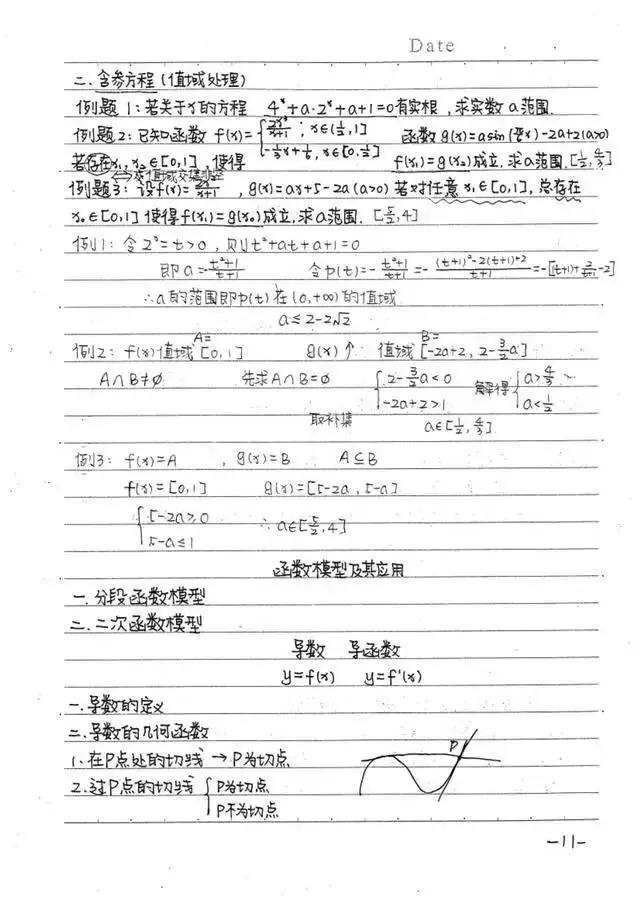 Date
二.含参方程(值域处理)
例题1:若关于x的方程 4^x+a·2^x+a+1=0有实根,求实数a范围.
例题2:已知函数 f(x)={ ; x∈(½,1] 函数g(x)=asin( x)-2a+2(a>0)
-⅓x+⅙, x∈[0,½]
若存在x₁,x₂∈[0,1],使得 f(x₁)=g(x₂)成立,求a范围.[½,4/3]
⇔求值域交集非空
例题3:设f(x)= ,g(x)=ax+5-2a(a>0) 若对任意x₁∈[0,1],总存在
x₀∈[0,1]使得f(x₁)=g(x₀)成立,求a范围. [5/2,4]
例1:令2^x=t>0,则t²+at+a+1=0
即a=-(t²+1)/(t+1) 令φ(t)=-(t²+1)/(t+1)=-((t+1)²-2(t+1)+2)/(t+1)=-[(t+1)+2/(t+1)-2]
∴a的范围即φ(t)在(0,+∞)的值域
a≤2-2√2
例2:f(x)值域A=[0,1] g(x)↑ 值域B=[-2a+2,2-3/2a]
A∩B≠∅ 先求A∩B=∅ {2-3/2a<0 解得{a>4/3
-2a+2>1 a<½
取补集 a∈[½,4/3]
例3:f(x)=A ,g(x)=B A⊆B
f(x)=[0,1] g(x)=[5-2a,5-a]
{5-2a≥0 ∴a∈[5/2,4]
5-a≤1
函数模型及其应用
一.分段函数模型
二.二次函数模型
导数 导函数
y=f(x) y=f'(x)
一.导数的定义
二.导数的几何函数
1.在P点处的切线→P为切点
P
2.过P点的切线{P为切点
P不为切点
-11-